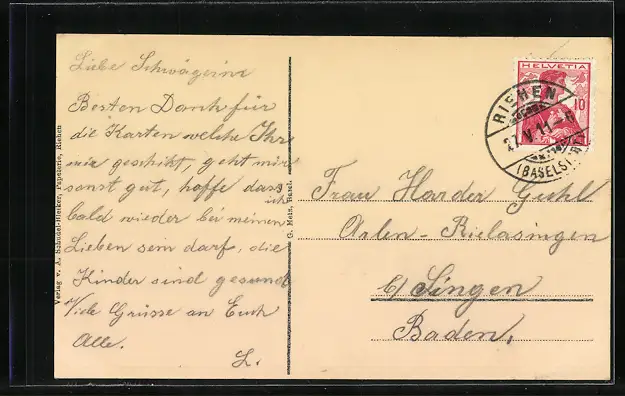 Liebe Schwägerin
Besten Dank für
die Karten welche Ihr
mir geschikt, geht mir
sonst gut, hoffe dass
ich
bald wieder bei meinen
Lieben sein darf, die
Kinder sind gesund
Viele Grüsse an Euch
Alle.
L.
Verlag v. A. Schudel-Bleiker, Papeterie, Riehen
G. Metz, Basel.
HELVETIA
10
RIEHEN
27.V.11
(BASELST
Frau Harder Guhl
Arlen-Rielasingen
b/ Singen
Baden.